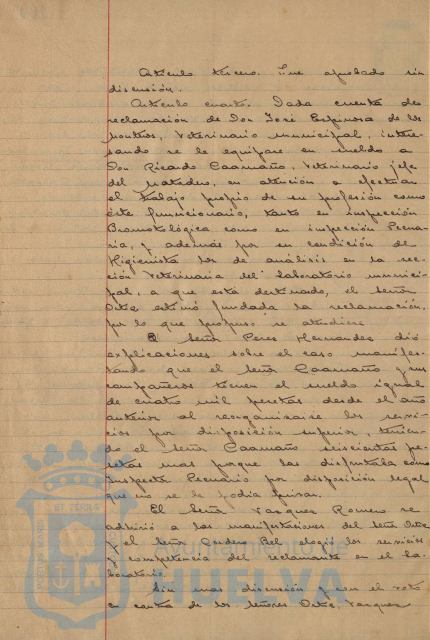 Artículo tercero. Fue aprobado sin
discusión.
Artículo cuarto. Dada cuenta de
reclamación de Don José Espinosa de los
Monteros, Veterinario municipal, intere-
sando se le equipare en sueldo a
Don Ricardo Caamaño, Veterinario jefe
del Matadero, en atención a efectuar
el trabajo propio de su profesión como
este funcionario, tanto en inspección
Bromatológica como en inspección Pecua-
ria, y además por su condición de
Higienista los de análisis en la sec-
ción Veterinaria del laboratorio munici-
pal, a que está destinado, el Señor
Ortiz estimó fundada la reclamación,
por lo que propuso se atendiera.
El Señor Peres Hernandez dió
explicaciones sobre el caso manifes-
tando que el Señor Caamaño y sus
compañeros tienen el sueldo igual
de cuatro mil pesetas desde el año
anterior al reorganizarse los servi-
cios por disposición superior, tenien-
do el Señor Caamaño seiscientas pe-
setas mas porque las disfrutaba como
Inspector Pecuario por disposición legal
que no se le podia privar.
El Señor Vazquez Romero se
adhirió a las manifestaciones del Señor Ortiz
y el Señor Cordero Bel elogió los servicios
y competencia del reclamante en el la-
boratorio.
Sin mas discusión y con el voto
en contra de los Señores Ortiz, Vazquez
Ayuntamiento de
HUELVA